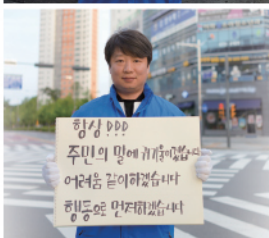 항상!!!
주민의 말에 귀기울이겠습니다
어려움 같이하겠습니다
행동으로 먼저하겠습니다